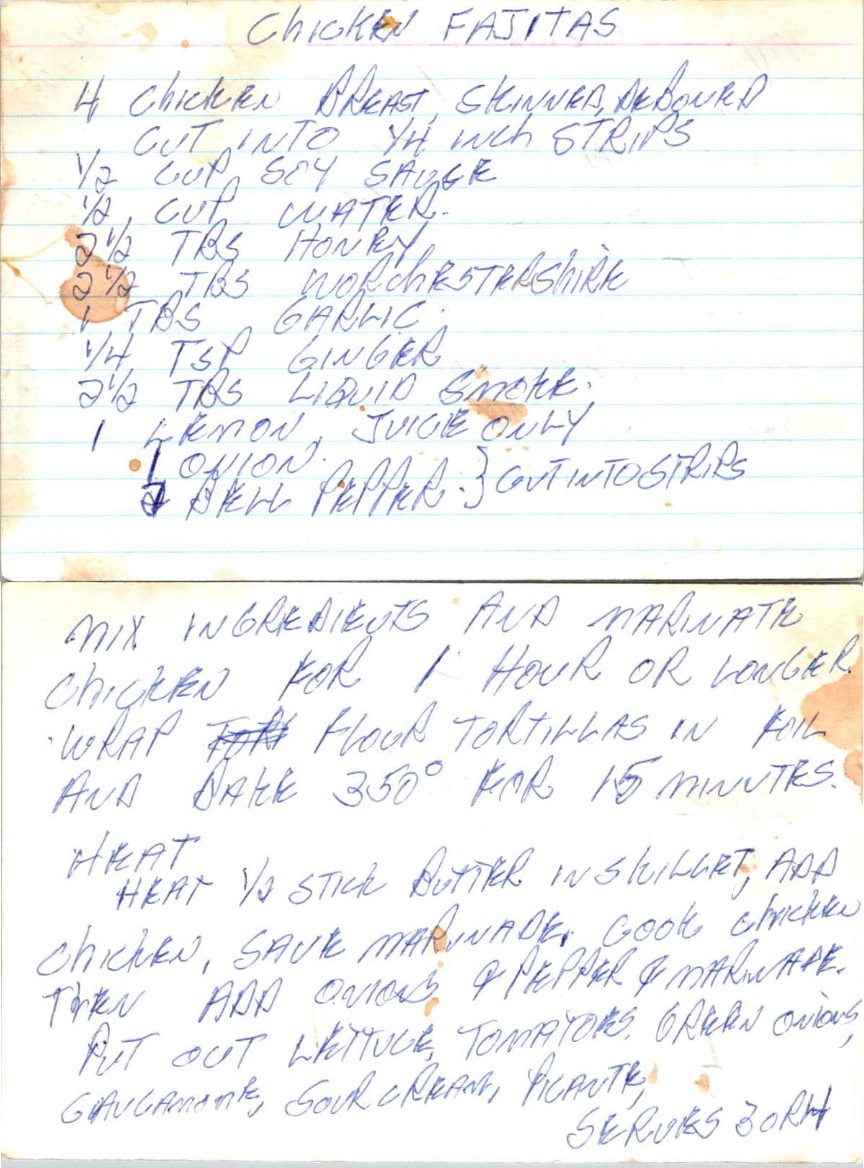 Chicken FAJITAS
4 Chicken BREAST, SKINNED, DEBONED
CUT INTO 1/4 inch STRIPS
1/2 CUP SOY SAUCE
1/2 CUP WATER.
2 1/2 TBS HONEY
2 1/2 TBS WORCHESTERShiRE
1 TBS GARLIC.
1/4 TSP GINGER
2 1/2 TBS LIQUID SMOKE.
1 LEMON, JUICE ONLY
1 ONION.
BELL PEPPER. } CUT INTO STRIPS
MIX INGREDIENTS AND MARINATE
ChicKEN FOR 1 HOUR OR LONGER.
WRAP FLOUR TORTILLAS IN FOIL
AND BAKE 350° FOR 15 MINUTES.
HEAT
HEAT 1/2 STICK BUTTER IN SKILLET, ADD
ChicKEN, SAVE MARINADE. COOK ChicKEN
THEN ADD ONIONS & PEPPER & MARINADE.
PUT OUT LETTUCE, TOMATOES. GREEN ONIONS,
GAUCAMOME, SOUR CREAM, PICANTE,
SERVES 3 OR 4